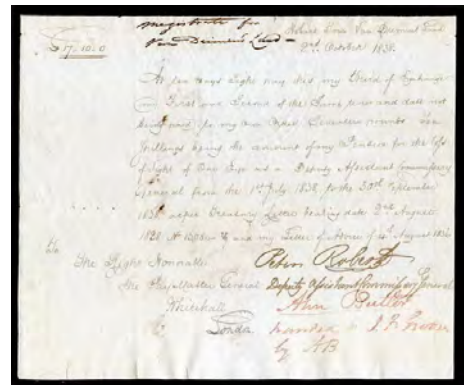 Magistrate for
Van Diemen's Land
£ 17-10-0
Hobart Town Van Diemens Land
2nd October 1838
At ten days sight pay this my Third of Exchange
First and Second of the same tenor and date not
being paid to my own order Seventeen pounds Ten
Shillings being the amount of my Pension for the loss
of sight of One Eye as a Deputy Assistant Commissary
General from the 1st July 1838 to the 30th September
1838 as per Treasury Letter bearing date 2nd August
and my Letter of Advice of August
To
The Right Honorable
The Paymaster General
Whitehall
London
Peter Roberts
Deputy Assistant Commissary General
Ann Butler
handed to
by AB